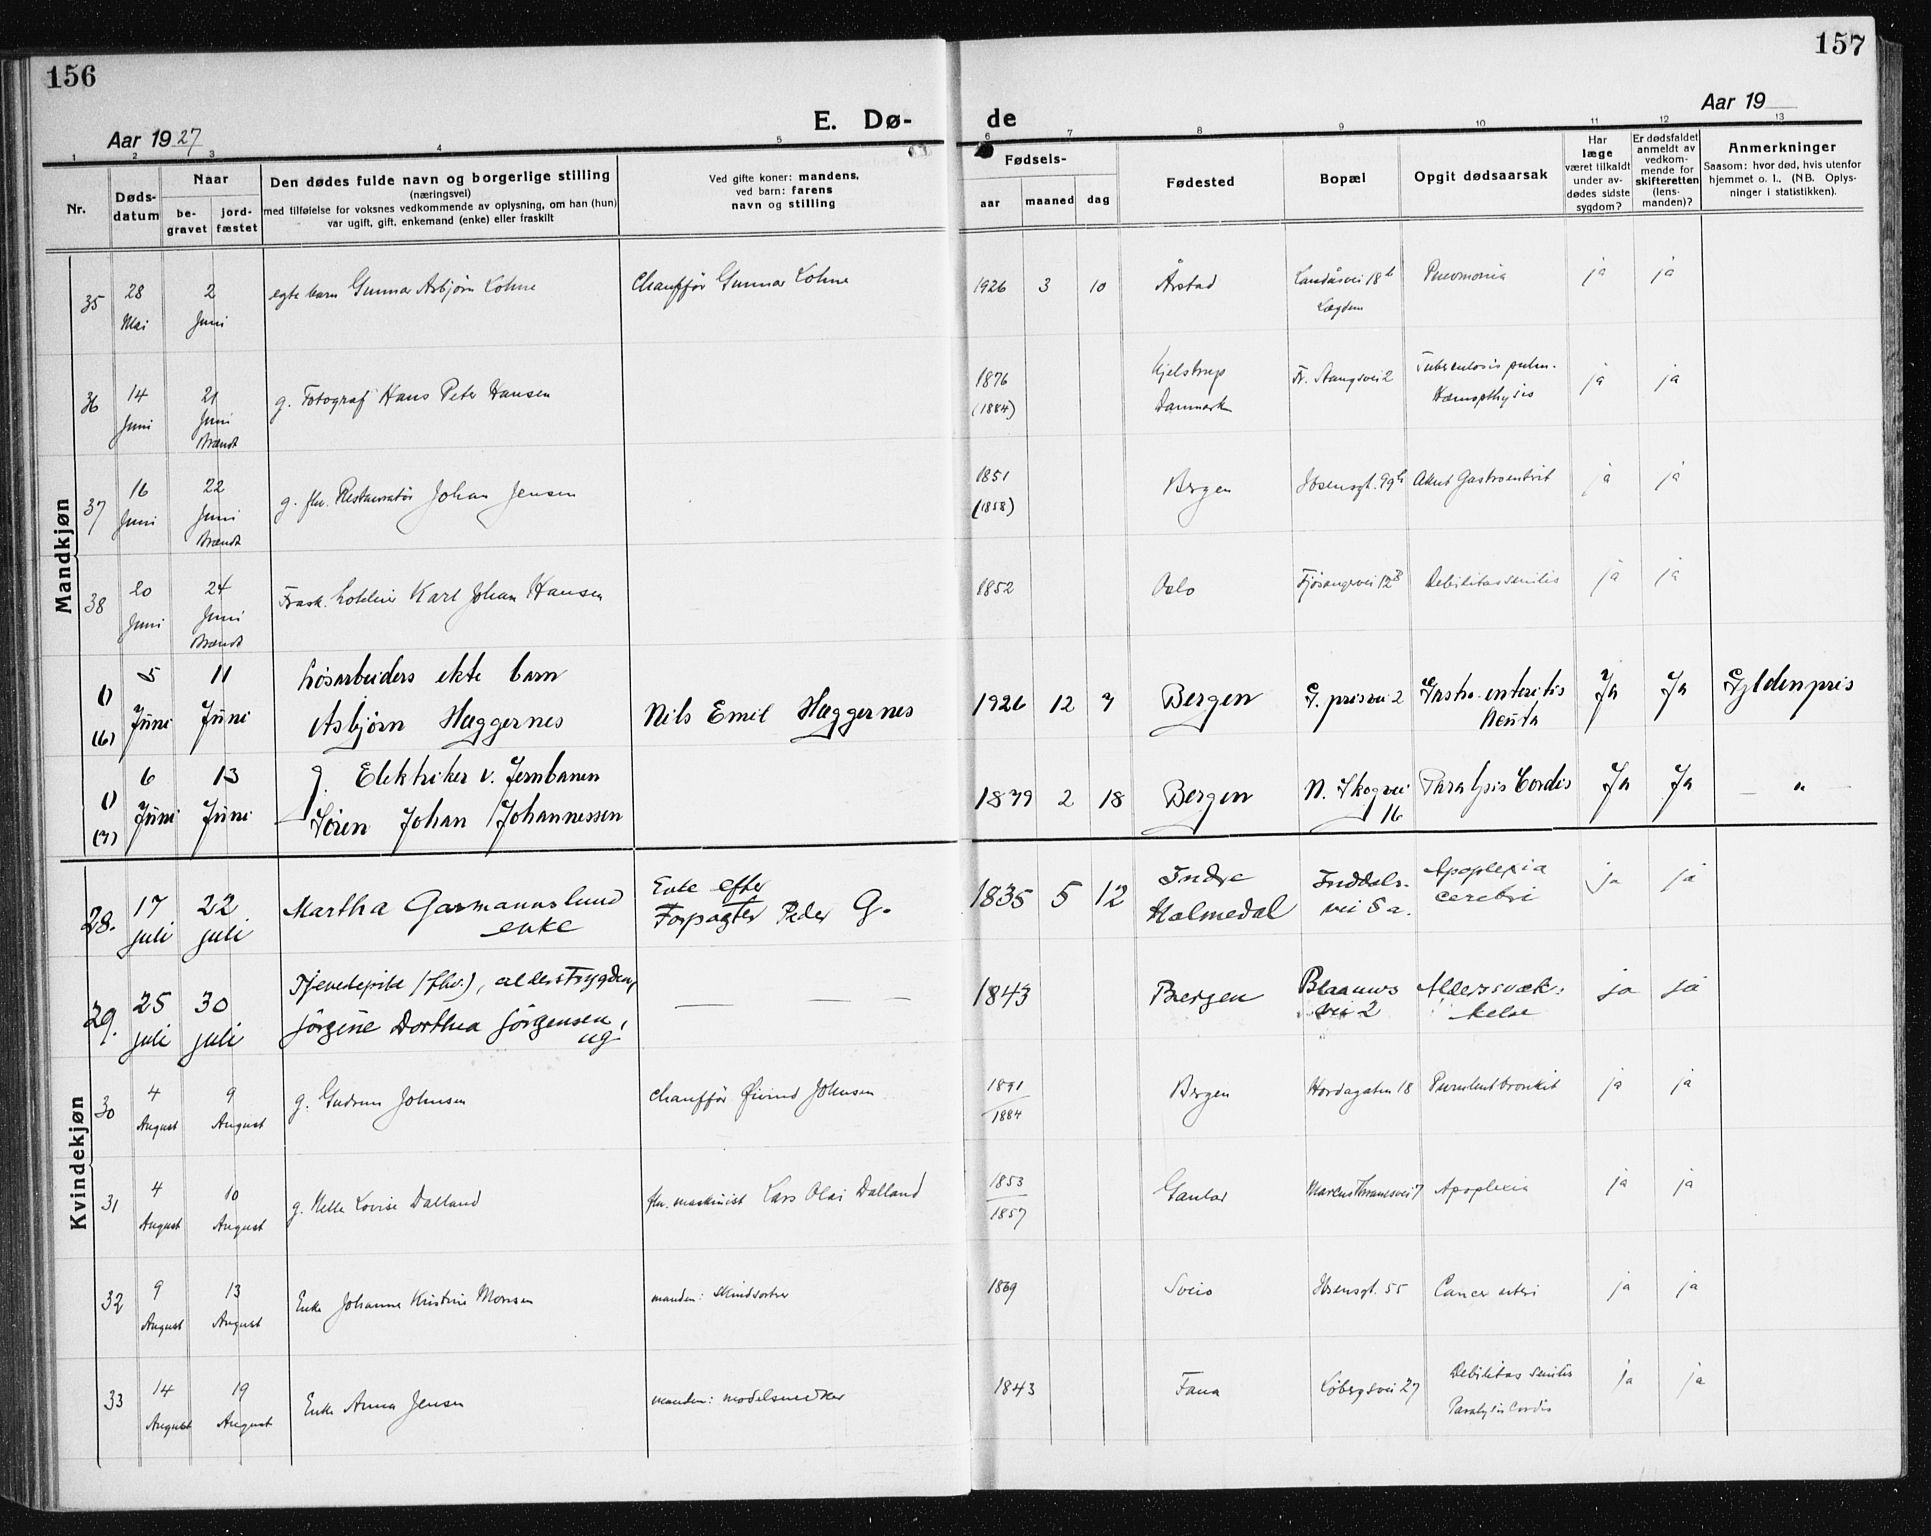 156
157
E. Dø-
de
Aar 1927
Aar 19
1 2 3 4 5 6 7 8 9 10 11 12 13
Nr.
Døds-
datum
Naar
be-
gravet
jord-
fæstet
Den dødes fulde navn og borgerlige stilling
(næringsvei)
med tilføielse for voksnes vedkommende av oplysning, om han (hun)
var ugift, gift, enkemand (enke) eller fraskilt
Ved gifte koner: mandens,
ved barn: farens
navn og stilling
Fødsels-
aar maaned dag
Fødested
Bopæl
Opgit dødsaarsak
Har
læge
været tilkaldt
under av-
dødes sidste
sygdom?
Er dødsfaldet
anmeldt av
vedkom-
mende for
skifteretten
(lens-
manden)?
Anmerkninger
Saasom: hvor død, hvis utenfor
hjemmet o. l., (NB. Oplys-
ninger i statistikken).
Mandkjøn
35 28 Mai 2 Juni egte barn Gunnar Asbjørn Lohne Chauffør Gunnar Lohne 1926 3 10 Årstad Landåsvei 18b Pneumonia ja ja
Lægden
36 14 Juni 21 Juni g. Fotograf Hans Peter Hansen 1876 (1884) Kjelstrup Danmark Fr. Stangsvei 2 Tuberculosis pulm. Hæmopthysis ja ja
Brændt
37 16 Juni 22 Juni g. fhv. Restauratør Johan Jensen 1851 (1858) Bergen Ibsensgt. 99b Akut Gastroenterit ja ja
Brændt
38 20 Juni 24 Juni Frask. Johan Hansen 1852 Oslo Fjøsangervei 12B Debilitas senilis ja ja
Brændt
(1) (6) 5 Juni 11 Juni Løsarbeiders ekte barn
Asbjørn Hæggernes Nils Emil Hæggernes 1926 12 7 Bergen G. prisvei 2 Gastro-enteritis Acuta Ja Ja Gyldenpris
(1) (7) 6 Juni 13 Juni g. Elektriker v. Jernbanen
Søren Johan Johannessen 1879 2 18 Bergen N. Skogvei 16 Paralysis Cordis Ja Ja — " —
Kvindekjøn
28. 17 juli 22 juli Martha Garmannslund enke Enke efter Forpagter Peder G. 1835 5 12 Indre Holmedal Inddalsvei 8 a. Apoplexia cerebri ja ja
29. 25 juli 30 juli Tjenestepike (fhv.), alderstrygden,
Jørgine Dorthea Jørgensen, ug. — — 1843 Bergen Blaauws vei 2 Alderssvæk- kelse ja ja
30 4 August 9 August g. Gudrun Johnsen Chauffør Øivind Johnsen 1891 1884 Bergen Hordagaten 18 Purulent bronkit ja ja
31 4 August 10 August g. Nelle Lovise Dalland fhv. maskinist Lars Olai Dalland 1853 1857 Gaular Marcus Thranesvei 7 Apoplexia ja ja
32 9 August 13 August Enke Johanne Kristine Monsen manden: Skindsorter 1869 Sveio Ibsensgt. 55 Cancer uteri ja ja
33 14 August 19 August Enke Anna Jensen manden: modelsnedker 1843 Fana Løbergsvei 27 Debilitas senilis Paralysis Cordis ja ja